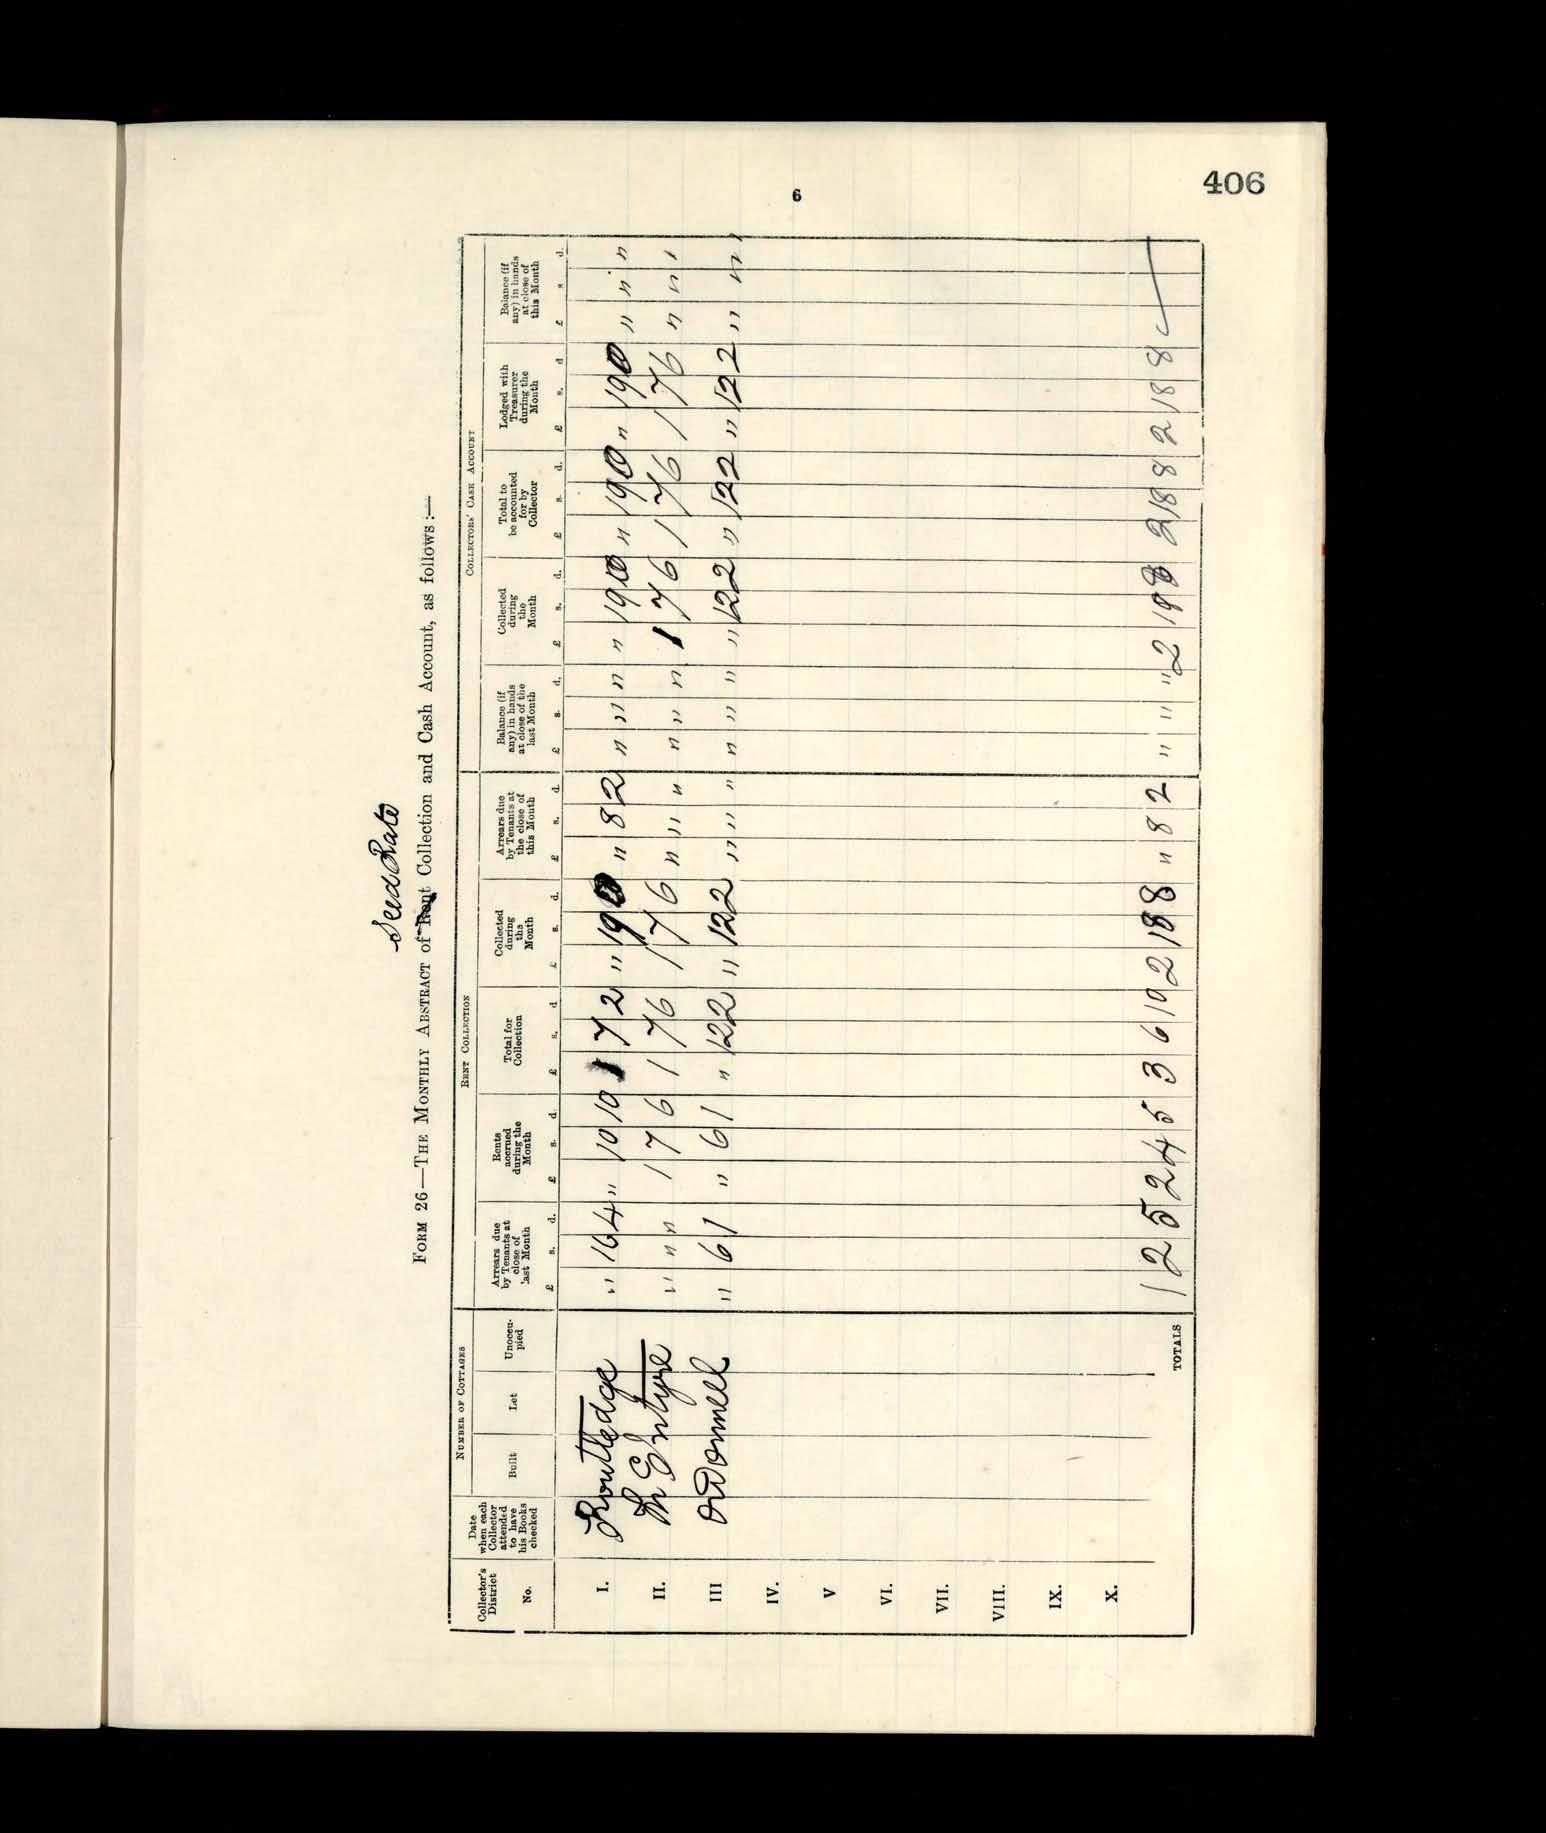 406
6
Seed Rate
FORM 26—THE MONTHLY ABSTRACT of Rent Collection and Cash Account, as follows :—
Collector's District No.
Date when each Collector attended to have his Books checked
NUMBER OF COTTAGES
Built
Let
Unoccupied
RENT COLLECTION
Arrears due by Tenants at close of last Month
Rents accrued during the Month
Total for Collection
Collected during the Month
Arrears due by Tenants at the close of this Month
COLLECTORS' CASH ACCOUNT
Balance (if any) in hands at close of the last Month
Collected during the Month
Total to be accounted for by Collector
Lodged with Treasurer during the Month
Balance (if any) in hands at close of this Month
£ s. d. £ s. d. £ s. d. £ s. d. £ s. d. £ s. d. £ s. d. £ s. d. £ s. d. £ s. d.
I. Routledge " 16 4 " 10 10 1 7 2 " 19 0 " 8 2 " " " " 19 0 " 19 0 " 19 0 " " "
II. McEntyre " " " 1 7 6 1 7 6 1 7 6 " " " " " " 1 7 6 1 7 6 1 7 6 " " "
III O'Donnell " 6 1 " 6 1 " 12 2 " 12 2 " " " " " " " 12 2 " 12 2 " 12 2 " " "
IV.
V
VI.
VII.
VIII.
IX.
X.
TOTALS 1 2 5 2 4 5 3 6 10 2 18 8 " 8 2 " " " 2 18 8 2 18 8 2 18 8